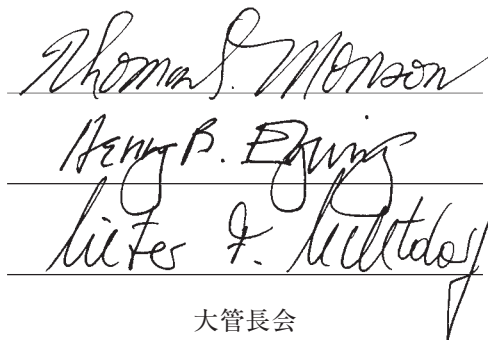 Thomas S. Monson
Henry B. Eyring
Dieter F. Uchtdorf
大管長会